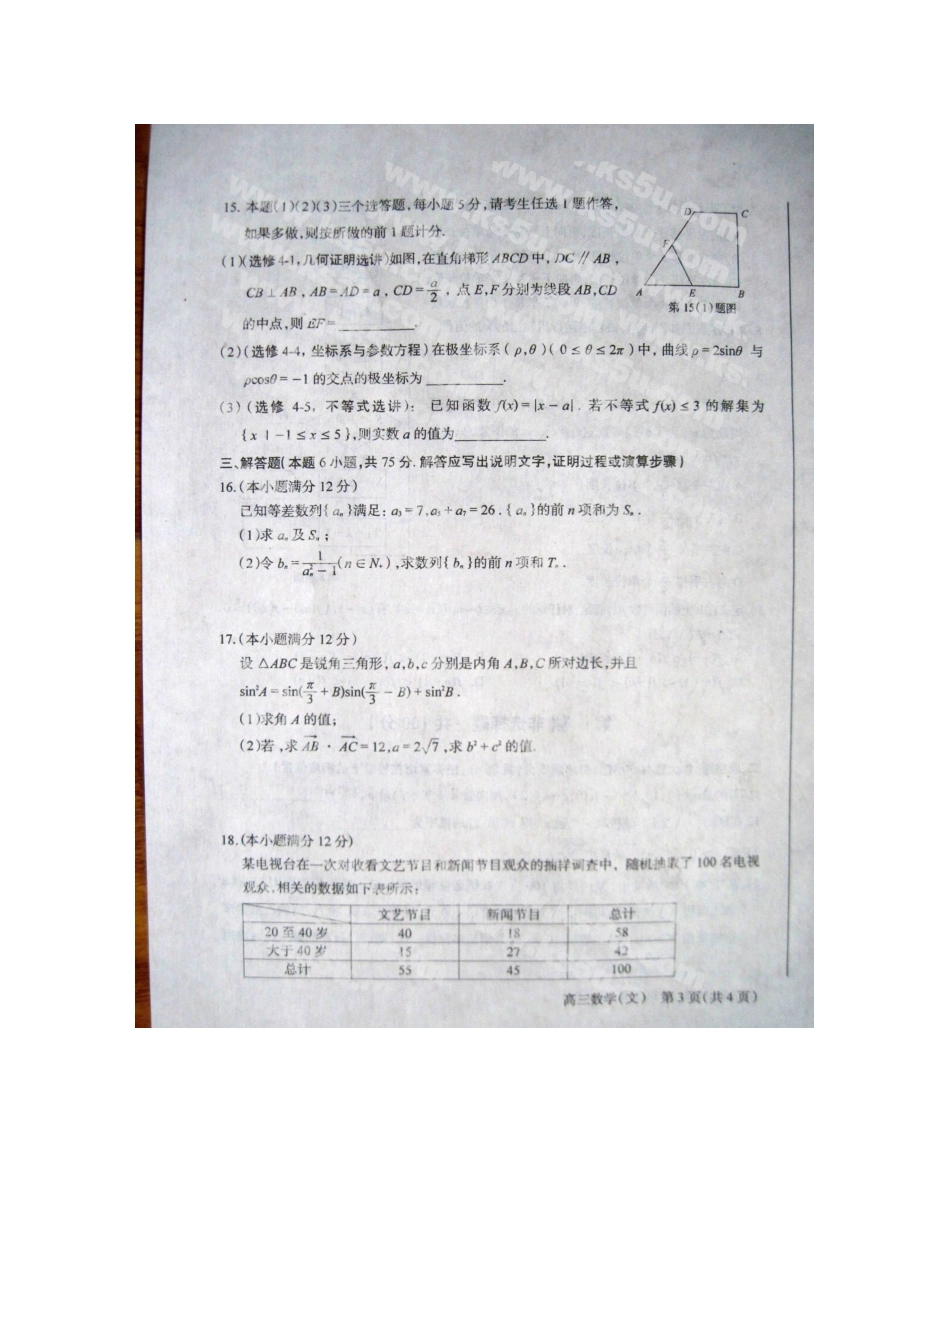 15. 本题(1)(2)(3)三个选答题,每小题5分,请考生任选1题作答,
如果多做,则按所做的前1题计分.
(1)(选修4-1,几何证明选讲)如图,在直角梯形ABCD中,DC∥AB,
CB⊥AB,AB=AD=a,CD=a/2,点E,F分别为线段AB,CD
的中点,则EF=________.
D C F A E B
第15(1)题图
(2)(选修4-4,坐标系与参数方程)在极坐标系(ρ,θ)(0≤θ≤2π)中,曲线ρ=2sinθ与
ρcosθ=-1的交点的极坐标为________.
(3)(选修 4-5,不等式选讲): 已知函数f(x)=|x-a|.若不等式f(x)≤3的解集为
{x|-1≤x≤5},则实数a的值为________.
三、解答题(本题6小题,共75分.解答应写出说明文字,证明过程或演算步骤)
16.(本小题满分12分)
已知等差数列{aₙ}满足:a₃=7,a₅+a₇=26.{aₙ}的前n项和为Sₙ.
(1)求aₙ及Sₙ;
(2)令bₙ=1/(aₙ²-1)(n∈N₊),求数列{bₙ}的前n项和Tₙ.
17.(本小题满分12分)
设△ABC是锐角三角形,a,b,c分别是内角A,B,C所对边长,并且
sin²A=sin(π/3+B)sin(π/3-B)+sin²B.
(1)求角A的值;
(2)若,求AB·AC=12,a=2√7,求b²+c²的值.
18.(本小题满分12分)
某电视台在一次对收看文艺节目和新闻节目观众的抽样调查中,随机抽取了100名电视
观众,相关的数据如下表所示:
文艺节目 新闻节目 总计
20至40岁 40 18 58
大于40岁 15 27 42
总计 55 45 100
高三数学(文) 第3页(共4页)